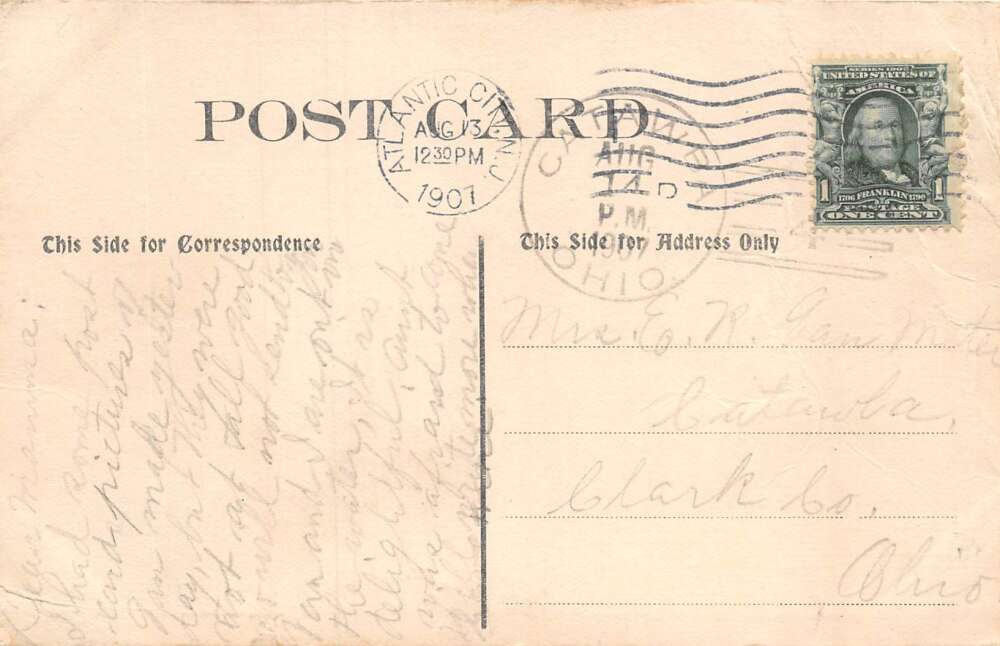 POST CARD
ATLANTIC CITY, N.J.
AUG 13
12 30 PM
1907
CATAWBA
AUG
14
D
P.M.
1907
OHIO
SERIES 1902
UNITED STATES OF
AMERICA
1706 FRANKLIN 1790
1 POSTAGE 1
ONE CENT
This Side for Correspondence
This Side for Address Only
Dear Mamma:
I had some post
card pictures of
make yester
day, but they were
not at all good
so will not send
and I are out on
the water. It is
delightful.
was afraid to come
Will write more when
Mrs. E. R. Van Meter
Catawba,
Clark Co.
Ohio